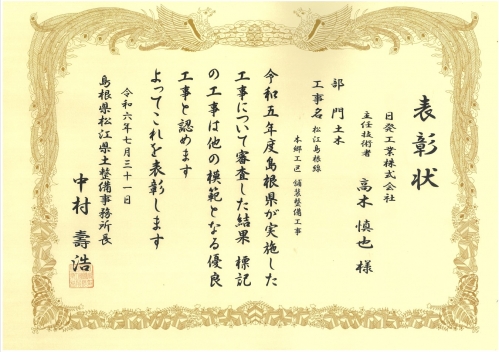 表彰状
日発工業株式会社
主任技術者
高木慎也 様
部門 土木
工事名 松江島根線
本郷工区 舗装整備工事
令和五年度島根県が実施した
工事について審査した結果 標記
の工事は他の模範となる優良
工事と認めます
よってこれを表彰します
令和六年七月三十一日
島根県松江県土整備事務所長
中村 壽浩